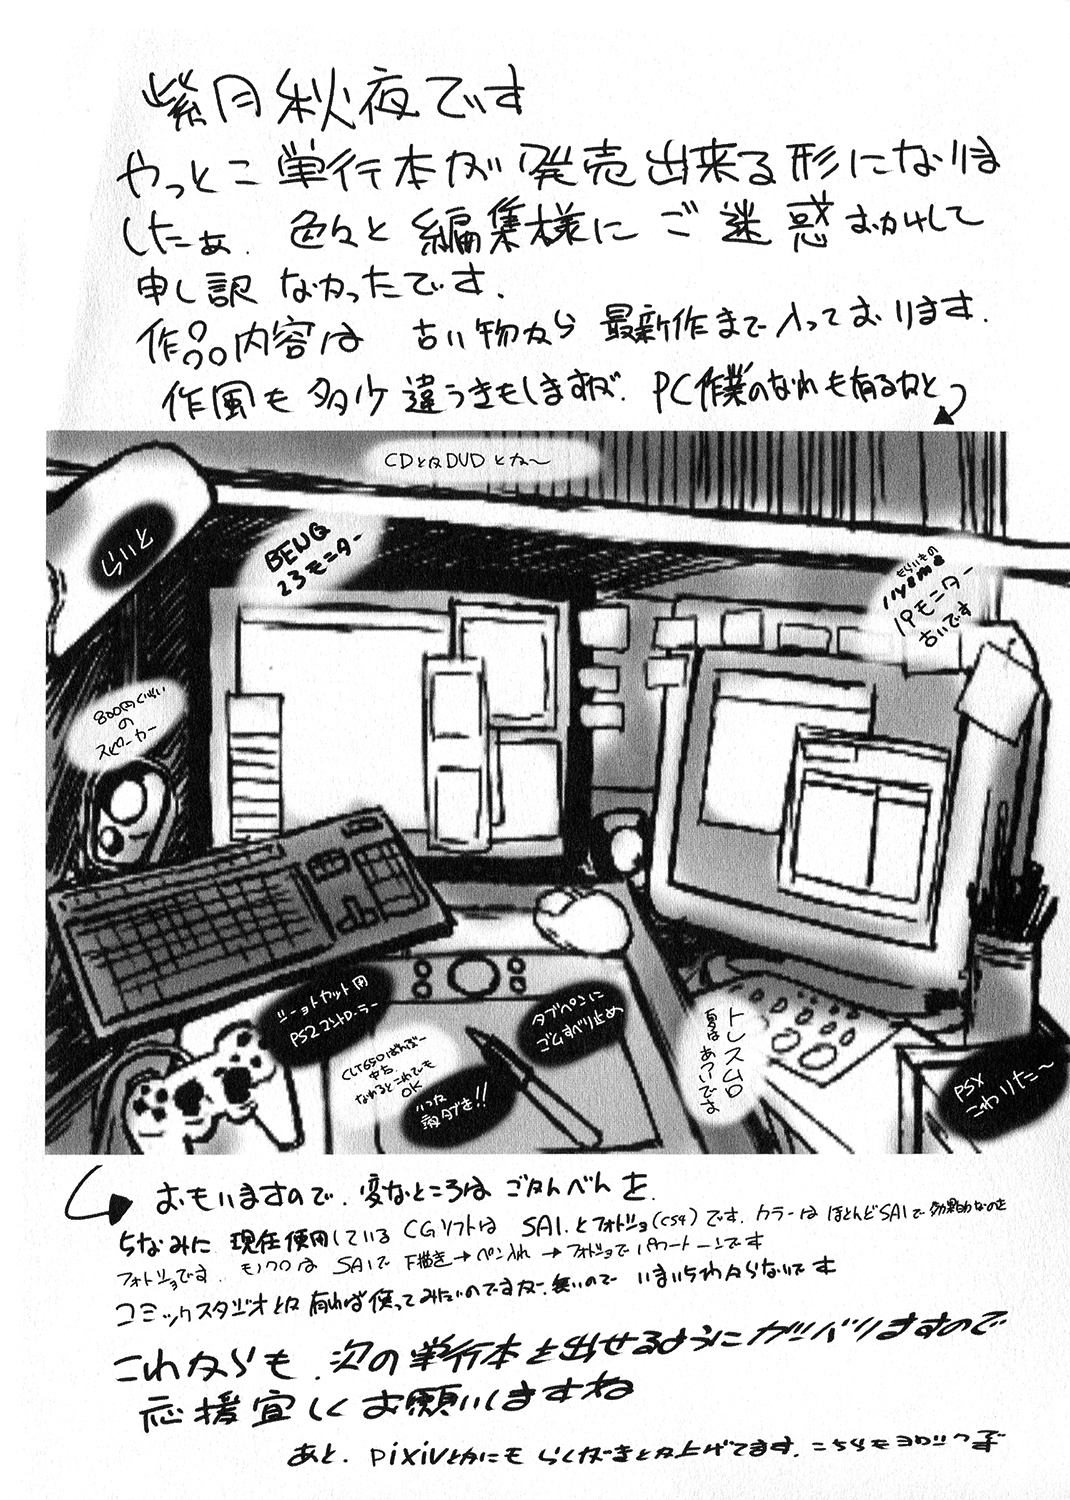 紫月秋夜です
やっとこ単行本が発売出来る形になりま
したぁ. 色々と編集様にご迷惑おかけして
申し訳なかったです.
作品内容は 古い物から 最新作まで入っております.
作風も多少違うきもしますが. PC作業のなれも有るかと
CDとかDVDとか〜
らいと
BENQ
23モニター
もらいもの
iiyama
19モニター
古いです
800円くらい
の
スピーカー
ショートカット用
PS2コントローラー
タブペンに
ゴムすべり止め
トレス台
夏はあついです
なれるとこれでも
OK
PSX
こわりた〜
おもいますので. 変なところは ごかんべんを.
ちなみに 現在使用している CGソフトは SAI.とフォトショ(CS4)です. カラーは ほとんどSAIで 効果的なのを
フォトショです. モノクロは SAIで 下描き→ペン入れ→フォトショで パワートーンです
コミックスタジオとか 有れば使ってみたいのですが. 無いので いまいちわからないです
これからも. 次の単行本を出せるようにガンバりますので
応援宜しくお願いしますね
あと. pixivとかにも らくがきとか上げてます. こちらもヨロシク